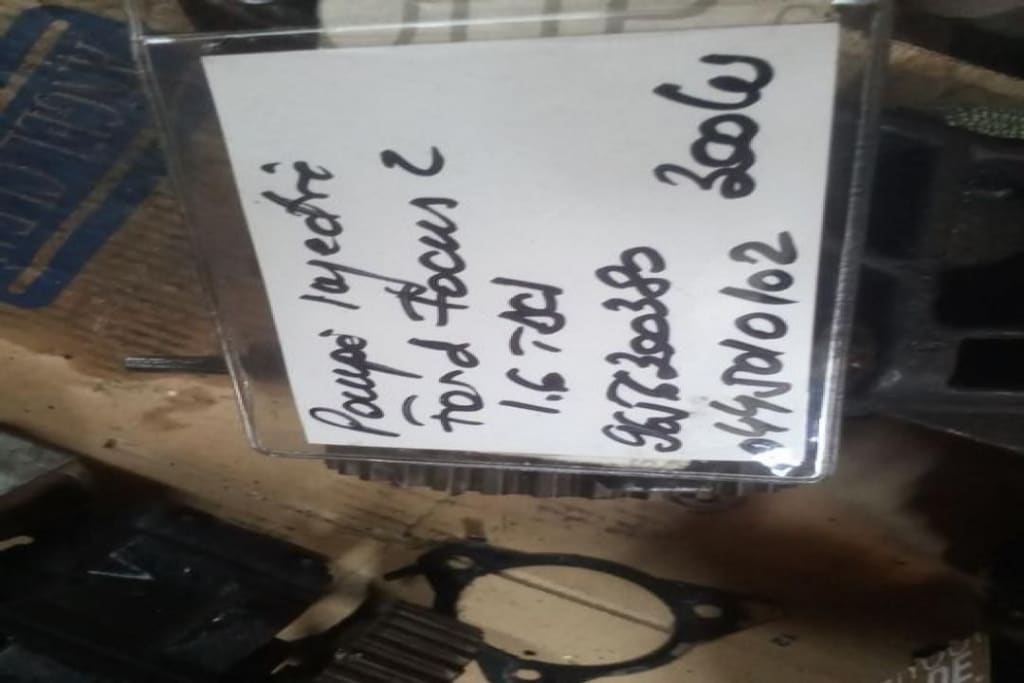 Pompă Injecție
Ford Focus 2
1.6 TDCI
9657300380
0445010102 300 lei